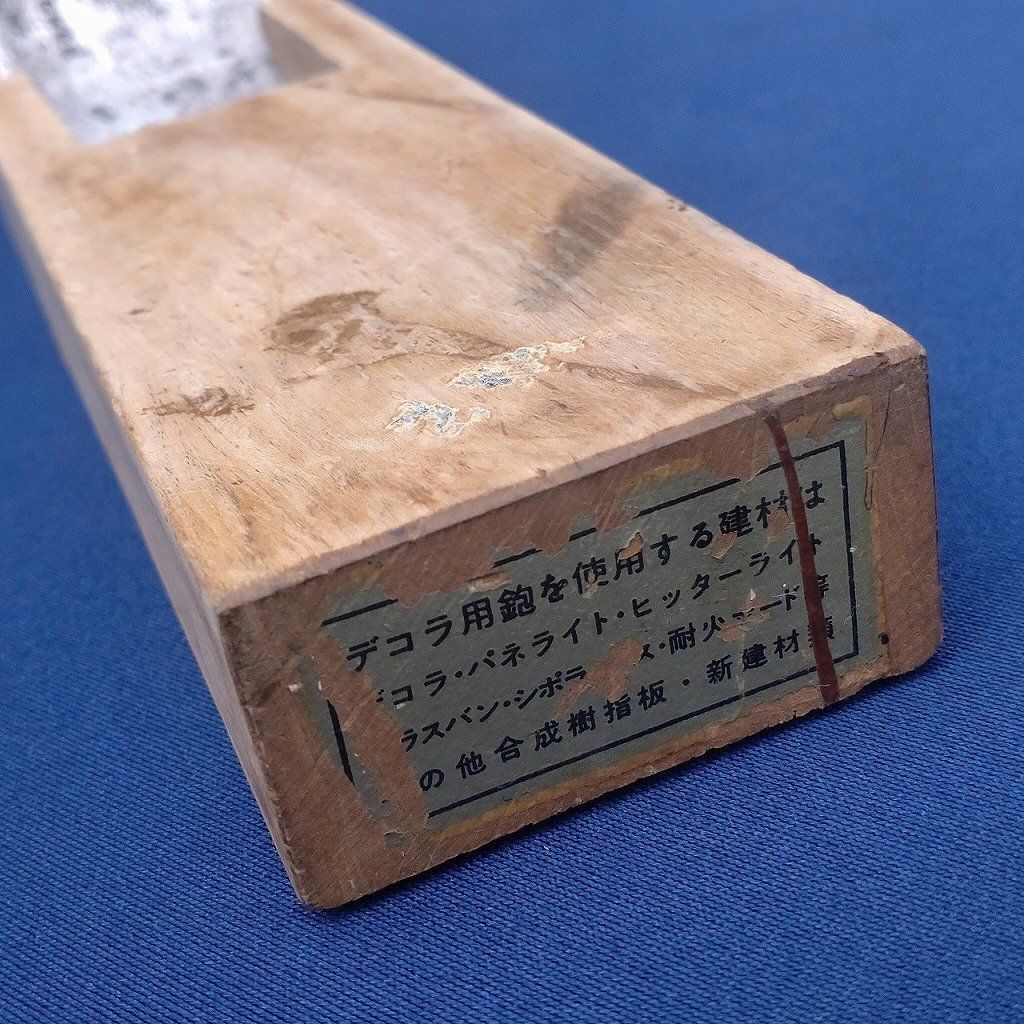 デコラ用鉋を使用する建材は
コラ・パネライト・ヒッターライト
ラスバン・シポラ ス・耐火 ード等
の他合成樹指板・新建材類